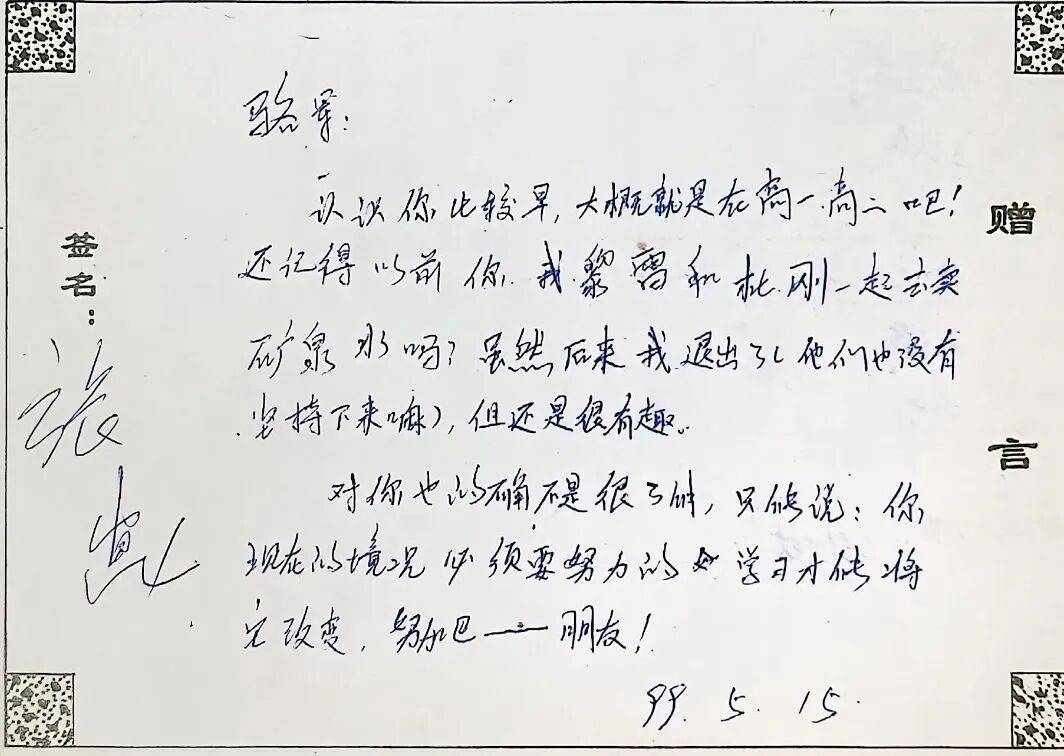 骆军：
认识你比较早，大概就是在高一.高二吧！
还记得以前你.我.黎雷和杜刚一起去卖
矿泉水吗？虽然后来我退出了（他们也没有
坚持下来嘛），但还是很有趣。
对你也的确不是很了解，只能说：你
现在的境况必须要努力的学习才能将
它改变，努力吧——朋友！
99.5.15.
签名：
赠言